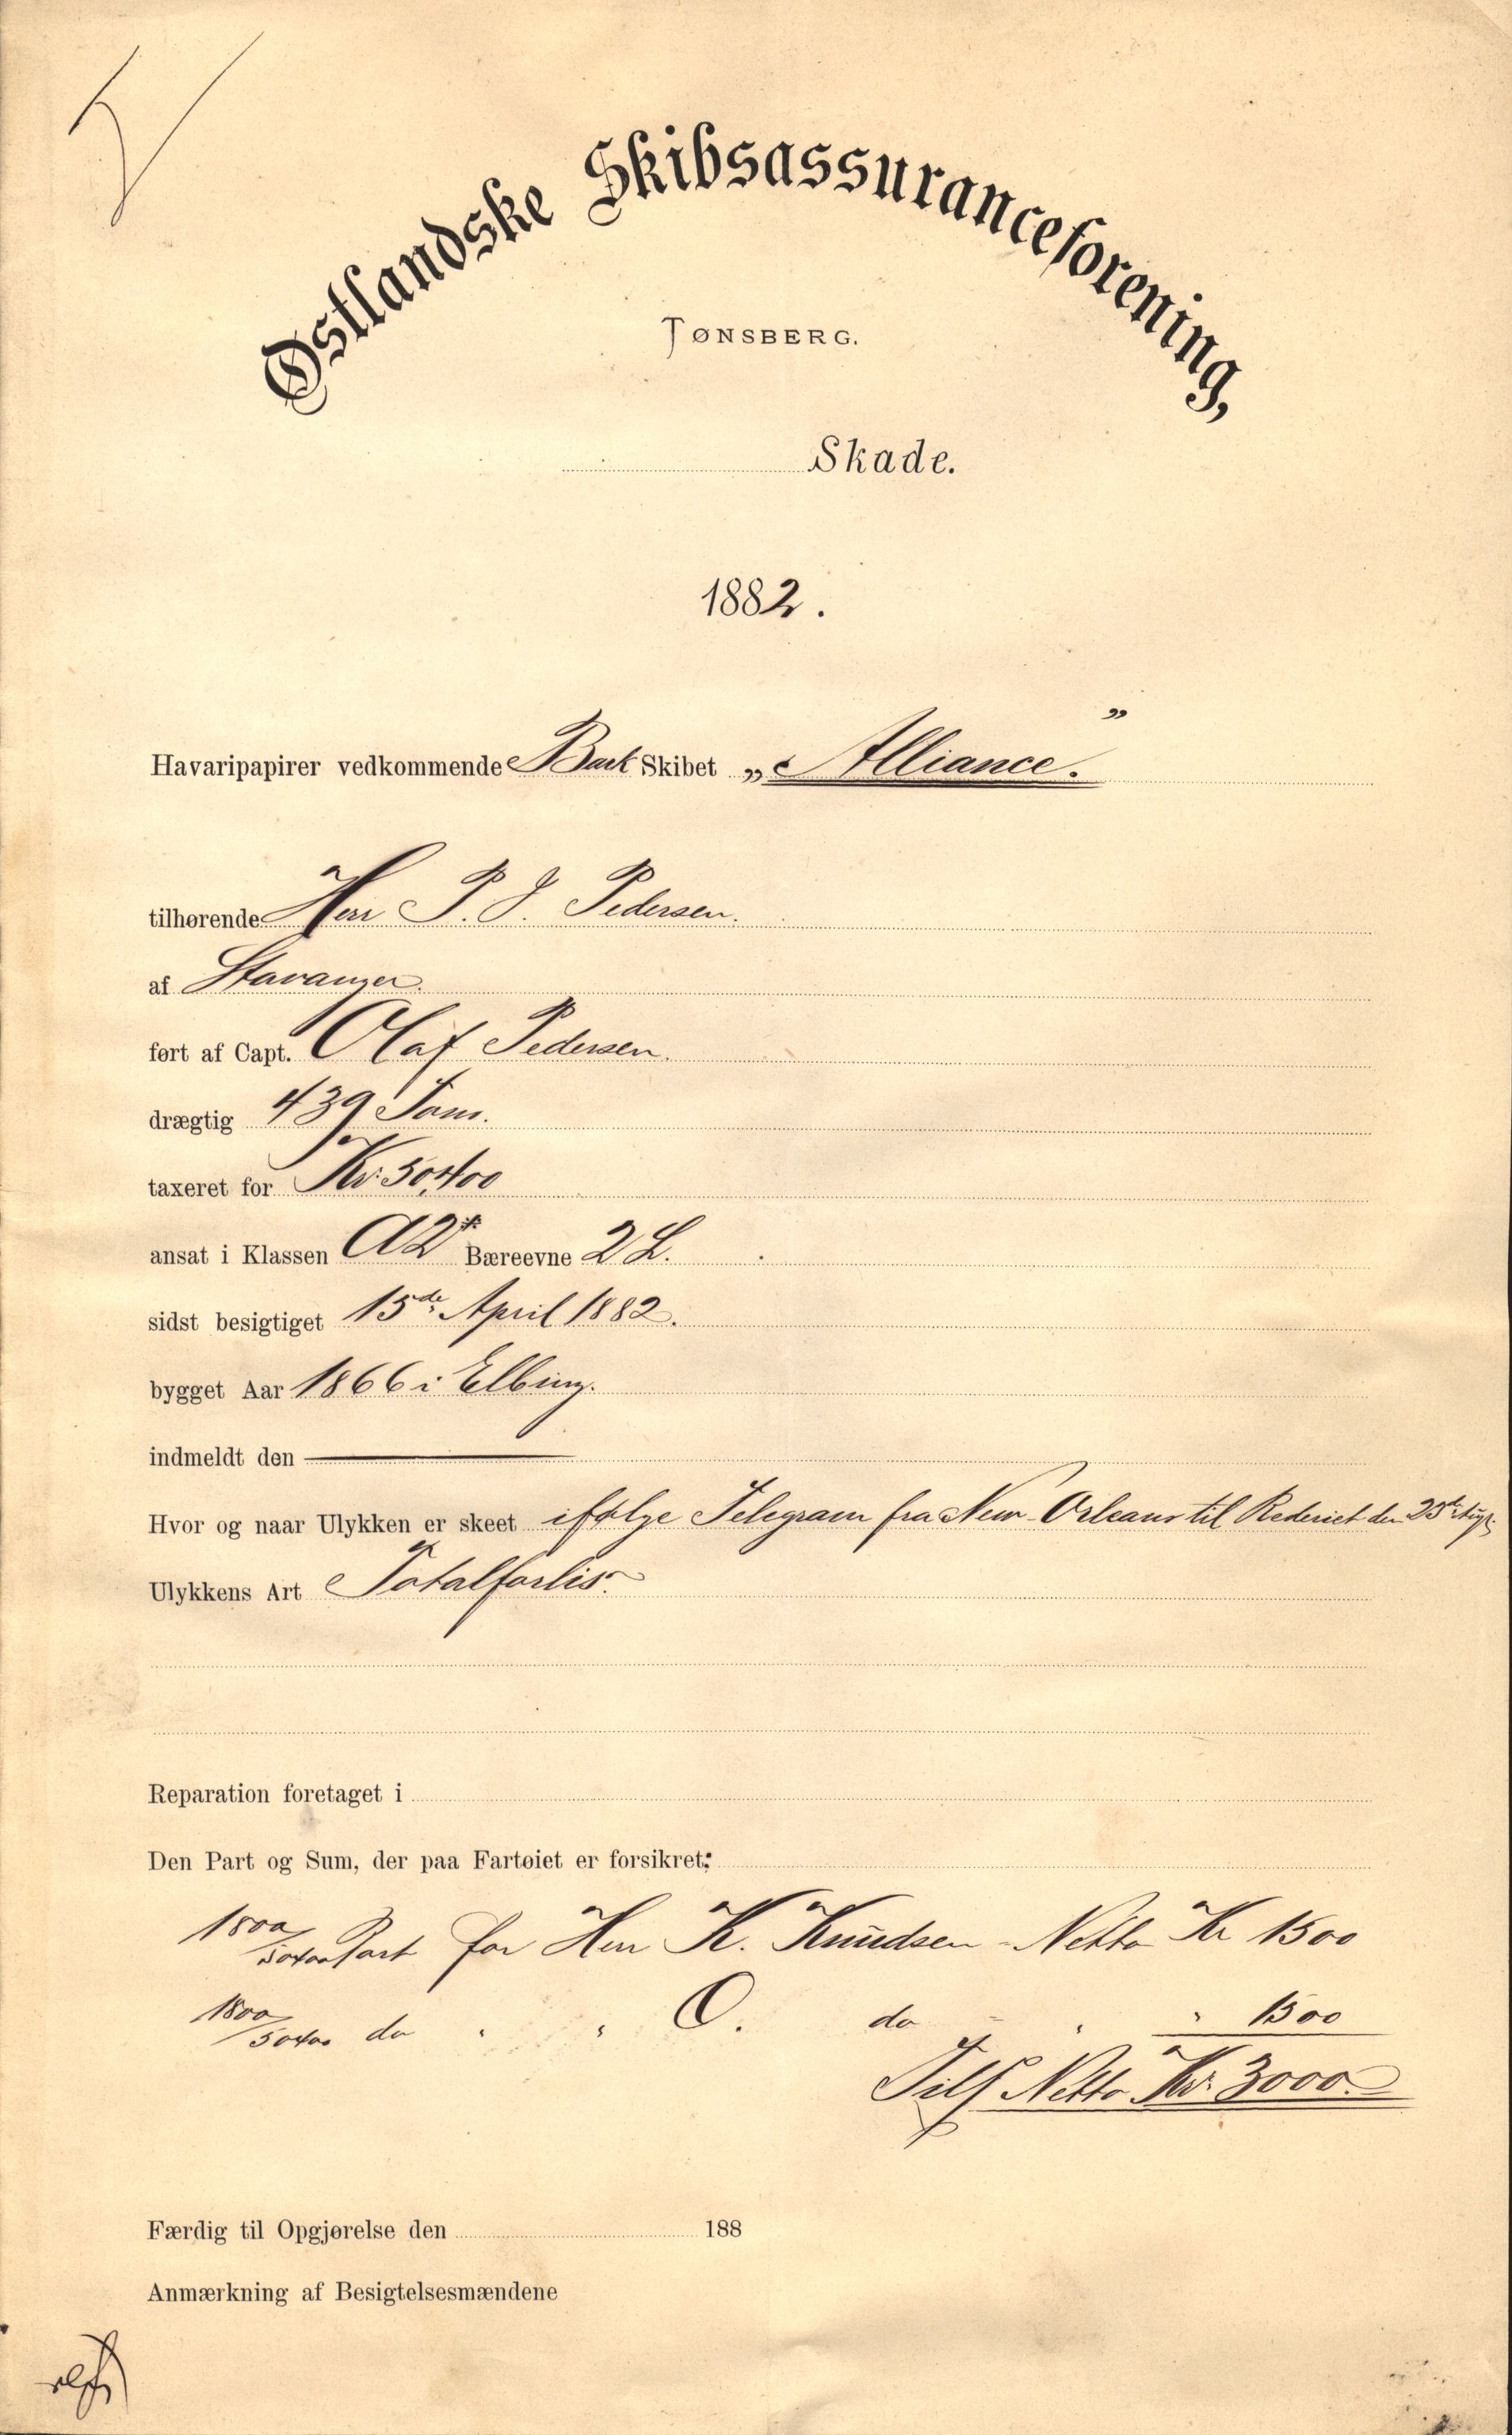 Østlandske Skibsassuranceforening,
TØNSBERG.
Skade.
1882.
Havaripapirer vedkommende Bark Skibet „Alliance.”
tilhørende Herr P. J. Pedersen.
af Stavanger.
ført af Capt. Olaf Pedersen.
drægtig 439 Tons.
taxeret for Kr. 50400
ansat i Klassen A2* Bæreevne 2 L.
sidst besigtiget 15de April 1882.
bygget Aar 1866 i Elbing.
indmeldt den
Hvor og naar Ulykken er skeet ifølge Telegram fra New-Orleans til Rederiet den
Ulykkens Art Totalforlis.
Reparation foretaget i
Den Part og Sum, der paa Fartøiet er forsikret:
1800/50400 Part for Herr K. Knudsen - Netto Kr 1500
1800/50400 do " " O. do - " " 1500
Tils Netto Kr. 3000.
Færdig til Opgjørelse den 188
Anmærkning af Besigtelsesmændene